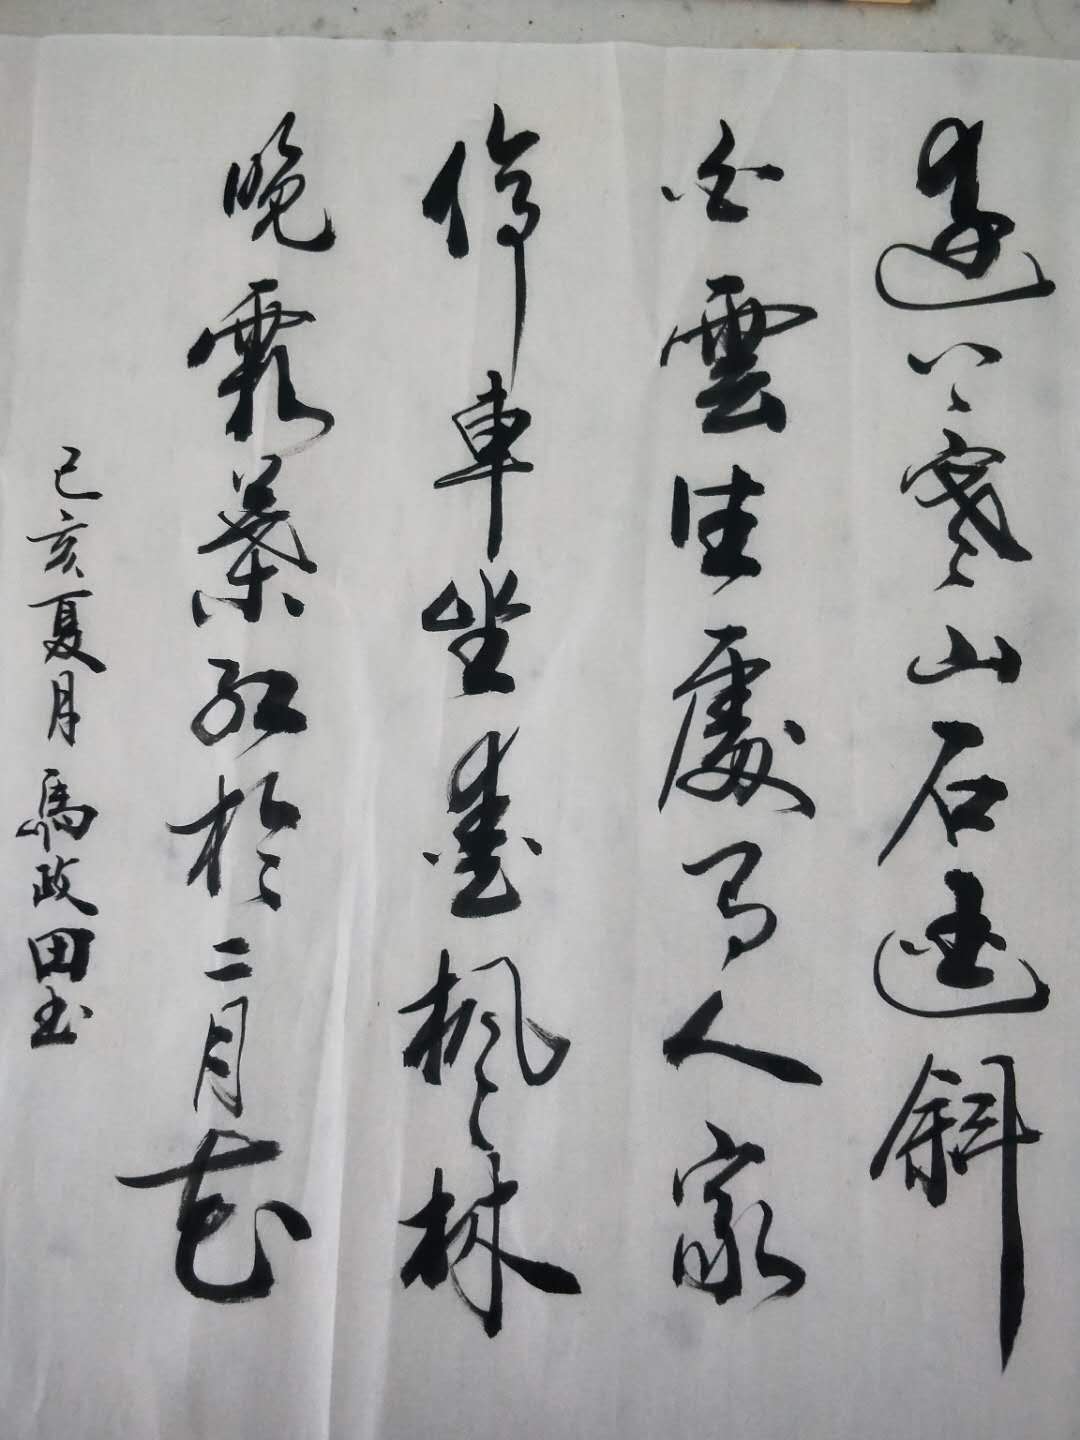 遠上寒山石逕斜
白雲生處有人家
停車坐愛楓林
晚霜葉紅於二月花
己亥夏月馬政田书